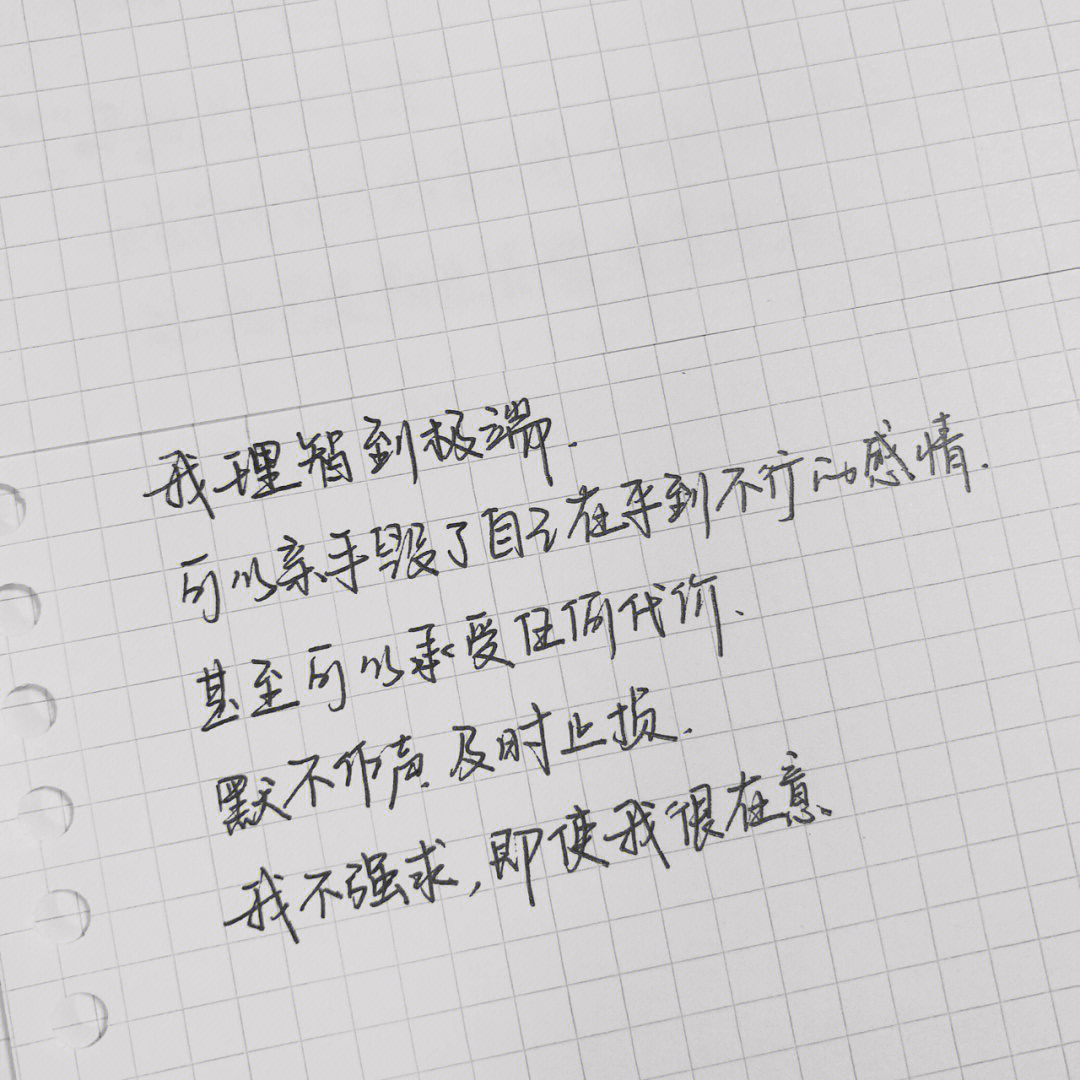 我理智到极端.
可以亲手毁了自己在乎到不行的感情.
甚至可以承受任何代价、
默不作声 及时止损.
我不强求,即使我很在意、